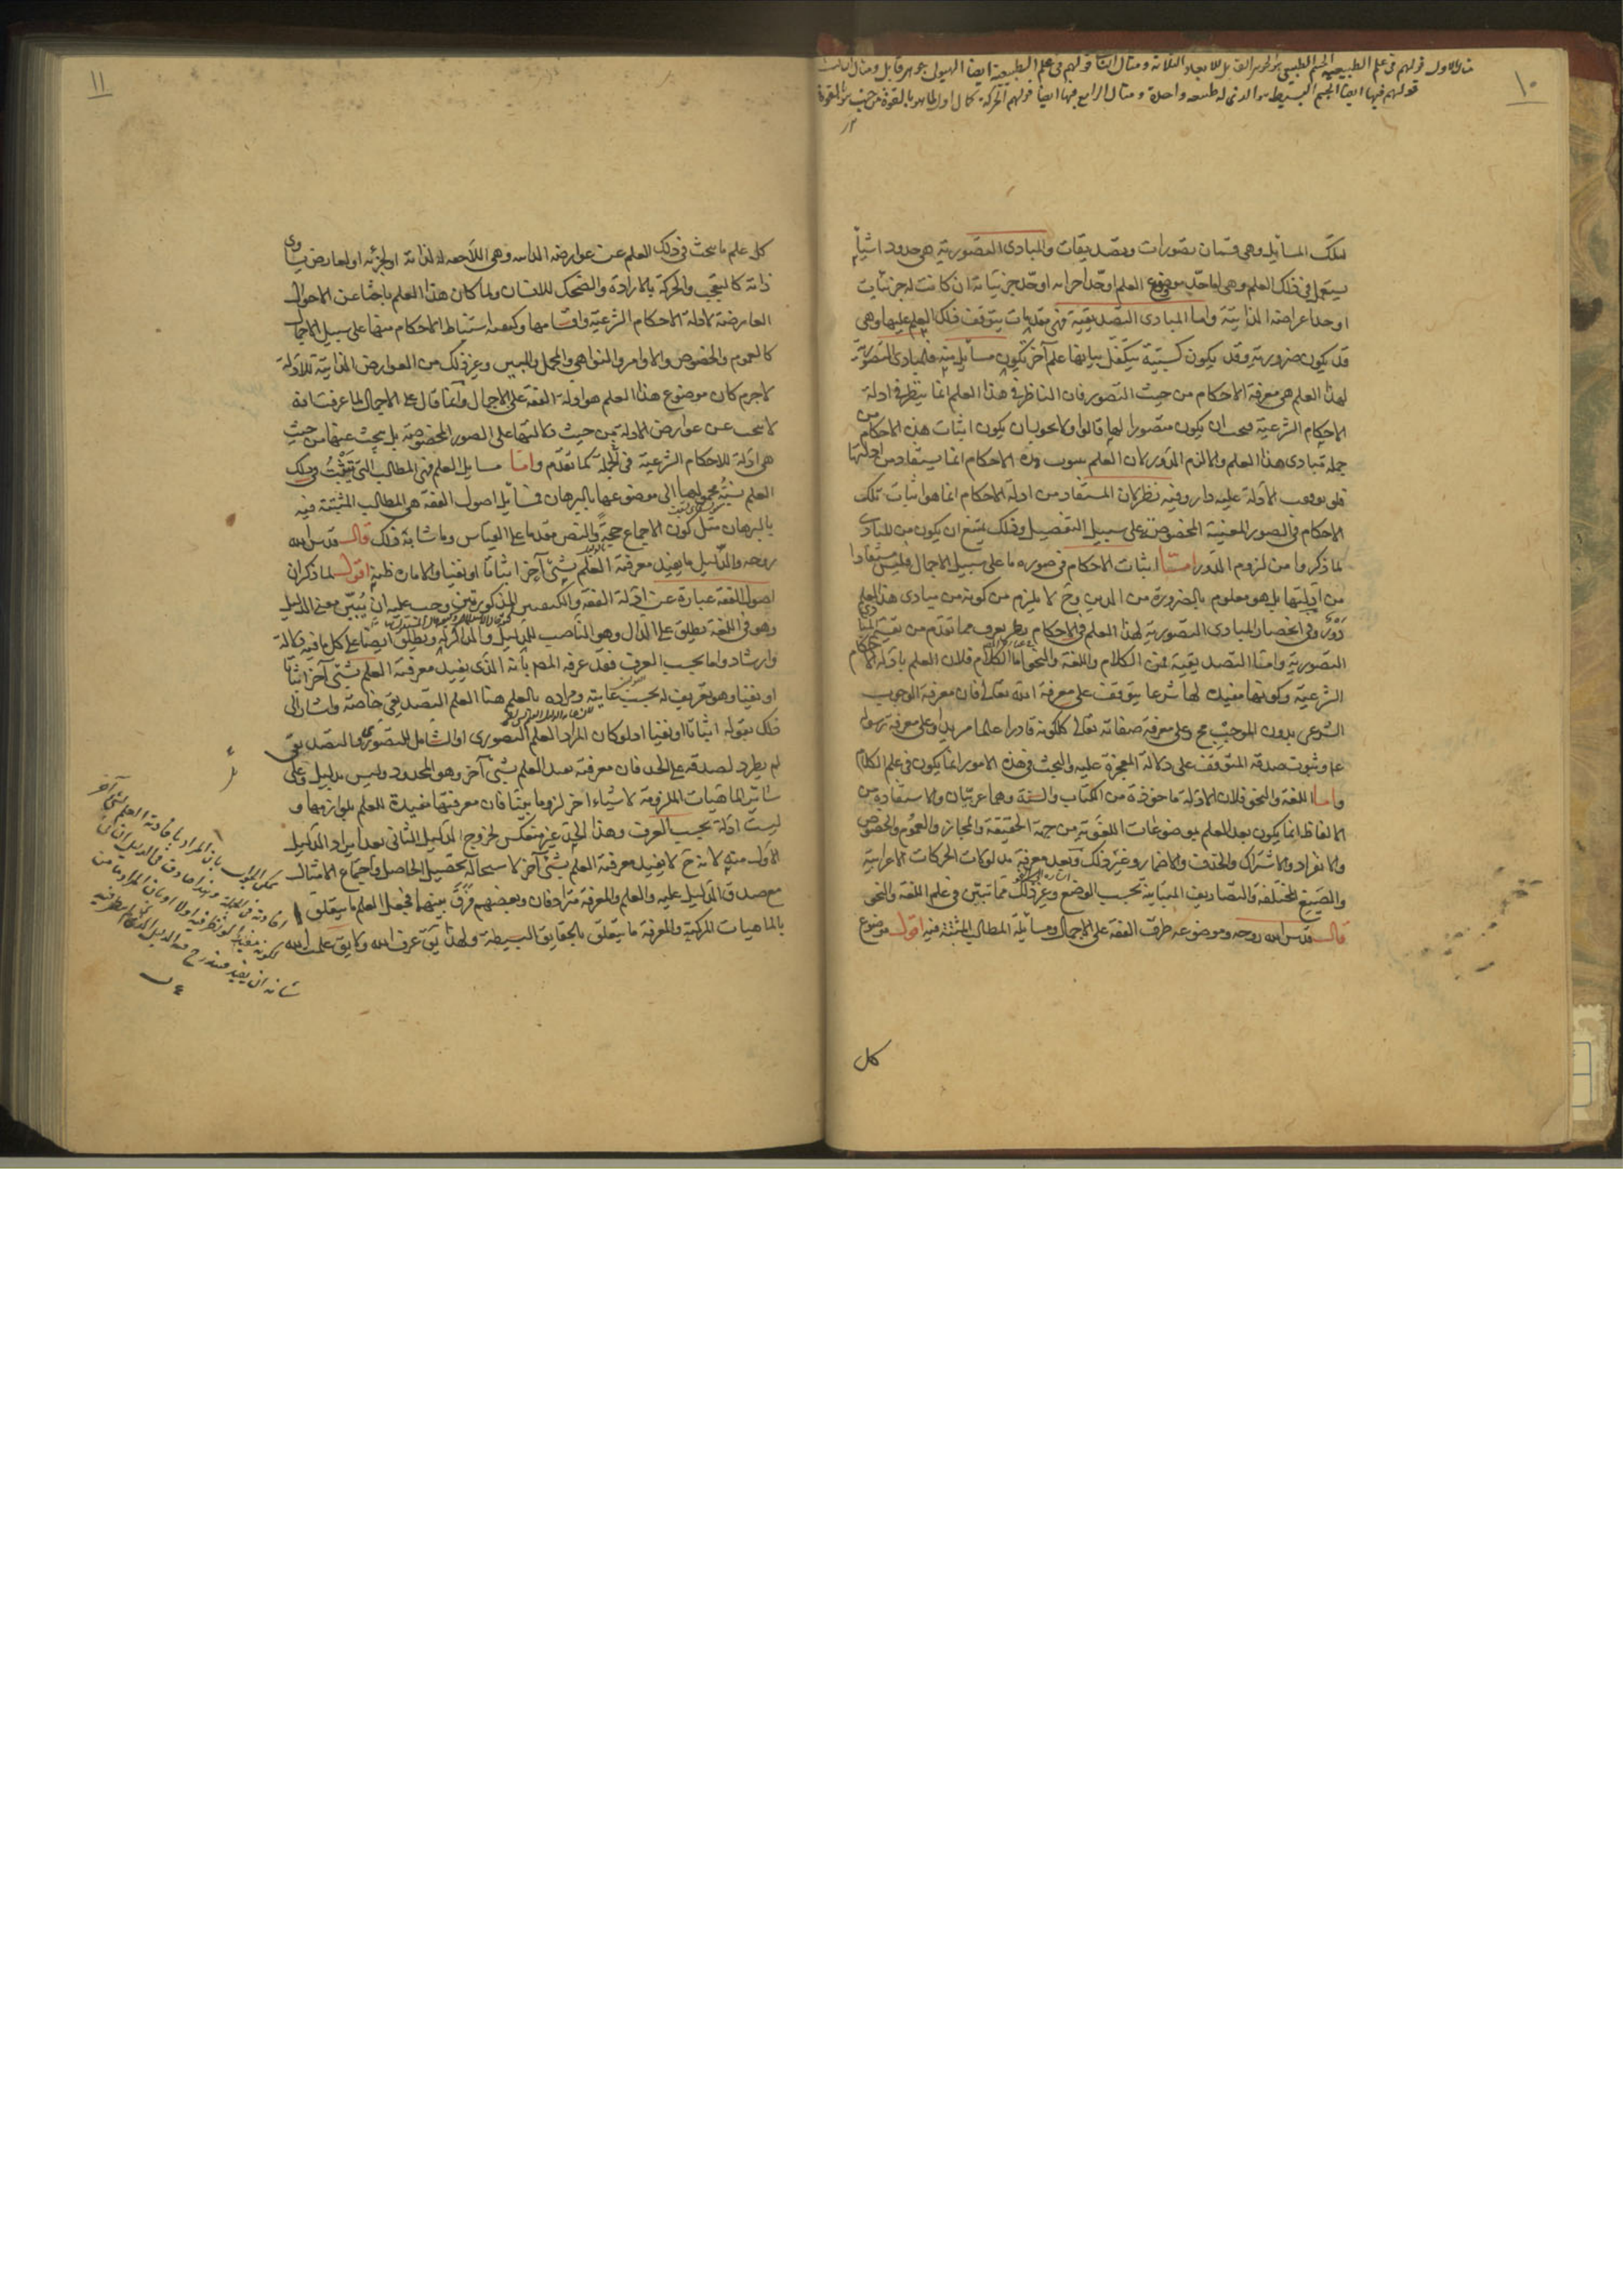 ١٠
مثال الاول قولهم فى علم الطبيعى الجسم الطبيعى هو الجوهر القابل للابعاد الثلاثة ومثال الثانى قولهم فى علم الطبيعية ايضا الهيولى جوهر قابل ومثال الثالث
قولهم فيها ايضا الجسم البسيط هو الذى له طبيعة واحدة ومثال الرابع فيها ايضا قولهم الحركة كمال اول لما هو بالقوة من حيث هو بالقوة
١٢
تلك المسايل وهى قسمان تصورات وتصديقات والمبادى التصورية هى حدود اشياء
يستعمل فى ذلك العلم وهى اما حد موضوع العلم او حد اجزائه او حد جزئياته ان كانت له جزئيات
او حد اعراضه الذاتية واما المبادى التصديقية فهى مقدمات يتوقف ذلك العلم عليها وهى
قد يكون ضرورية وقد يكون كسبية يتكفل ببيانها علم آخر تكون مسائل منه فالمبادى التصورية
لهذا العلم هى معرفة الاحكام من حيث التصور فان الناظر فى هذا العلم انما ينظر فى ادلة
الاحكام الشرعية فيجب ان يكون متصورا لها قالوا ولا يجوز ان يكون اثبات هذه الاحكام من
جملة مبادى هذا العلم والا لزم الدور لان العلم بثبوت هذه الاحكام انما يستفاد من ادلتها
فلو توقفت الادلة عليه دار وفيه نظر لان المستفاد من ادلة الاحكام انما هو اثبات تلك
الاحكام فى الصور المعينة المخصوصة على سبيل التفصيل وذلك يمتنع ان يكون من المبادى
لما ذكروا من لزوم الدور اما اثبات الاحكام فى صورة ما على سبيل الاجمال فليس مستفادا
من ادلتها بل هو معلوم بالضرورة من الدين وح لا يلزم من كونه من مبادى هذا العلم
دور وفى انحصار المبادى التصورية لهذا العلم فى الاحكام نظر يعرف مما تقدم من تقسيم المبادى
التصورية واما التصديقية فمن الكلام واللغة والنحو اما الكلام فلان العلم بادلة الاحكام
الشرعية وكونها مفيدة لها شرعا يتوقف على معرفة الله تعالى فان معرفة الوجوب
الشرعى بدون الموجب مح وعلى معرفة صفاته تعالى ككونه قادرا عالما مريدا وعلى معرفة رسول
عا وثبوت صدقه المتوقف على دلالة المعجزة عليه والبحث فى هذه الامور انما يكون فى علم الكلام
واما اللغة والنحو فلان الادلة ماخوذة من الكتاب والسنة وهما عربيان والاستفادة من
الالفاظ انما يكون بعد العلم بموضوعات اللغوية من جهة الحقيقة والمجاز والعموم والخصوص
والانفراد والاشتراك والحذف والاضمار وغير ذلك وبعد معرفة مدلولات الحركات الاعرابية
والصيغ المختلفة والتصاريف المتباينة بحسب الوضع وغير ذلك مما تبين فى علم اللغة والنحو
قال قدس الله روحه وموضوعه طرق الفقه على الاجمال ومسائله المطالب المثبتة فيه اقول موضوع
كل
١١
كل علم ما يبحث فى ذلك العلم عن عوارضه الذاتية وهى اللاحقة له لذاته او لجزئه او لعارض يساوى
ذاته كالتعجب والحركة بالارادة والضحك للانسان ولما كان هذا العلم باحثا عن الاحوال
العارضة لادلة الاحكام الشرعية واقسامها وكيفية استنباط الاحكام منها على سبيل الاجمال
كالعموم والخصوص والاوامر والنواهى والمجمل والمبين وغير ذلك من العوارض الذاتية للادلة
لاجرم كان موضوع هذا العلم هو ادلة الفقه على الاجمال وانما قال على الاجمال لما عرفت انه
لا يبحث عن عوارض الادلة من حيث دلالتها على الصور المخصوصة بل يبحث عنها من حيث
هى ادلة للاحكام الشرعية فى الجملة كما تقدم واما مسايل العلم فهى المطالب التى تثبت فى ذلك
العلم نسبة محمولها الى موضوعها بالبرهان فمسايل اصول الفقه هى المطالب المثبتة فيه
بالبرهان مثل كون الاجماع حجة والنص مقدما على القياس وما شابه ذلك قال قدس الله
روحه والدليل ما يفيد معرفة العلم بشئ آخر اثباتا او نفيا والامارة ظنية اقول لما ذكر ان
اصول الفقه عبارة عن ادلة الفقه والكيفيتين المذكورتين وجب عليه ان يبين معنى الدليل
وهو فى اللغة يطلق على الدال وهو الناصب للدليل والذاكر له ويطلق ايضا على كل ما فيه دلالة
وارشاد واما بحسب العرف فقد عرفه المصم بانه الذى يفيد معرفة العلم بشئ آخر اثباتا
او نفيا وهو تعريف له بحسب غايته ومراده بالعلم هنا العلم التصديقى خاصة واشار الى
ذلك بقوله اثباتا او نفيا اذ لو كان المراد العلم التصورى او الشامل للتصورى والتصديقى
لم يطرد لصدقه على الحد فان معرفته تفيد العلم بشئ آخر وهو المحدود وليس بدليل وعلى
سائر الماهيات الملزومة لاشياء اخر لزوما بينا فان معرفتها مفيدة للعلم بلوازمها و
ليست ادلة بحسب العرف وهذا الحد غير منعكس لخروج الدليل الثانى بعد ايراد الدليل
الاول منه لانه ح لا يفيد معرفة العلم بشئ آخر لاستحالة تحصيل الحاصل واجتماع الامثال
مع صدق الدليل عليه والعلم والمعرفة مترادفان وبعضهم فرق بينهما فجعل العلم ما يتعلق
بالماهيات المركبة والمعرفة ما يتعلق بالحقايق البسيطة ولهذا يق عرفت الله ولا يق علمت الله
يمكن الجواب بان المراد بافادته العلم بشئ آخر
افادته فى الجملة وهذا صادق فى الدليل الثانى
شانه ان يفيد فيندرج فيه الدليل